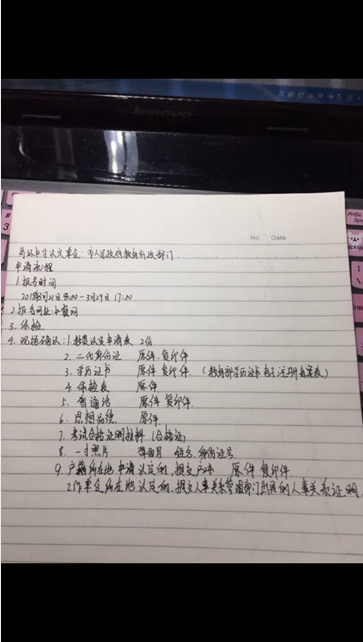 lenovo
No. Date
高级中学认定单位：市人民政府教育行政部门
申请流程
1.报名时间
-3月29日 17:00
2.报名网址:中资网
3.体检
4.现场确认:1.教资认定申请表 2份
2.二代身份证 原件.复印件
3.学历证书 原件 复印件 (教育部学历证书电子注册备案表)
4.体检表 原件
5.普通话 原件 复印件.
6.思想品德 原件.
7.考试合格证明材料 (合格证)
8.一寸照片 背面 姓名.身份证号
9.户籍所在地申请认定的,提交户口本 原件 复印件
工作单位所在地认定的,提交人事关系管理部门出具的人事关系证明